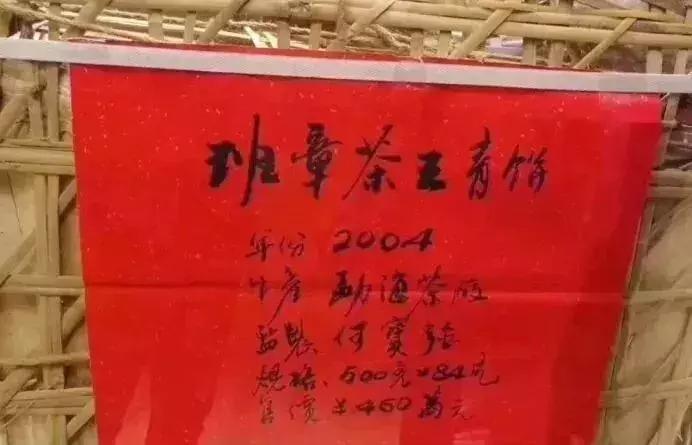 班章茶王青饼
年份 2004
生产 勐海茶厂
监製 何寳强
规格 500克×84片
售價 ¥460萬元